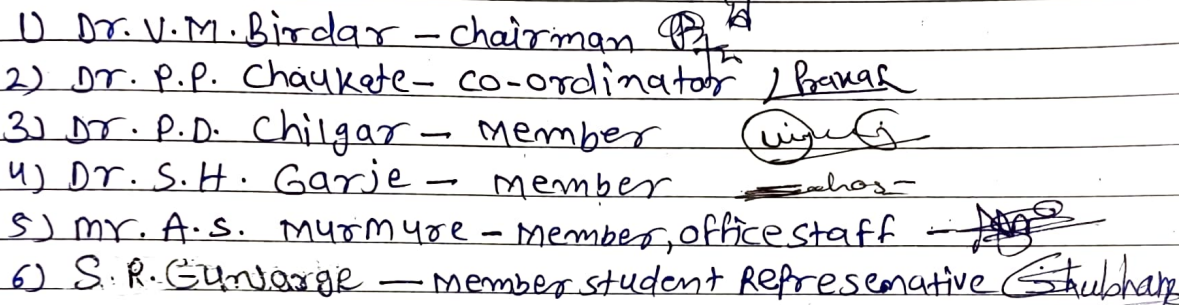 1) Dr. V.M. Birdar - chairman
2) Dr. P.P. Chaukate - co-ordinator
3) Dr. P.D. Chilgar - Member
4) Dr. S.H. Garje - member
5) mr. A.S. Murmure - Member, office staff -
6) S.R. - member student Represenative Shubham